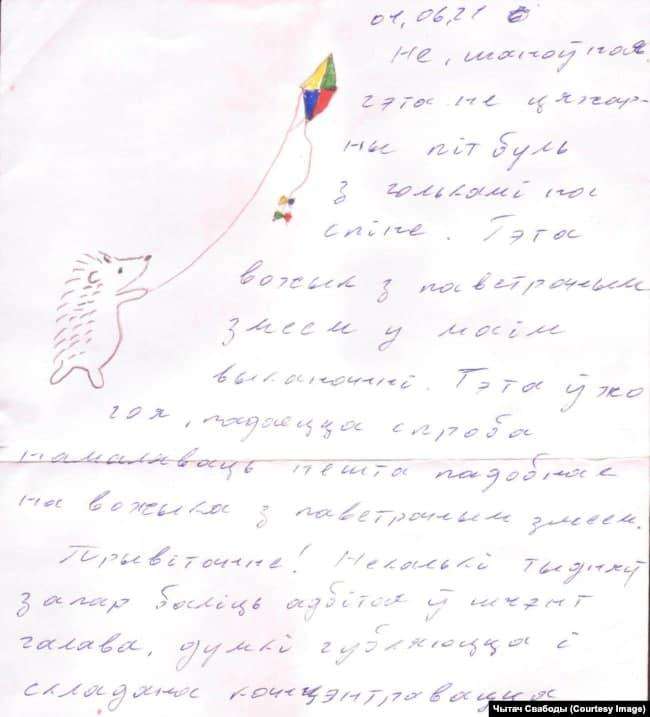 01.06.21
Не, шаноўная,
гэта не цяжар-
ны пітбуль
з голькамі на
спіне. Гэта
вожык з паветраным
змеем у маім
выкананні. Гэта ўжо
-ая, падаецца спроба
намаляваць нешта падобнае
на вожыка з паветраным змеем.
Прывітанне! Некалькі тыдняў
запар баліць адбітая ў шчэнт
галава, думкі губляюцца і
складана канцэнтравацца
Чытач Свабоды (Courtesy Image)